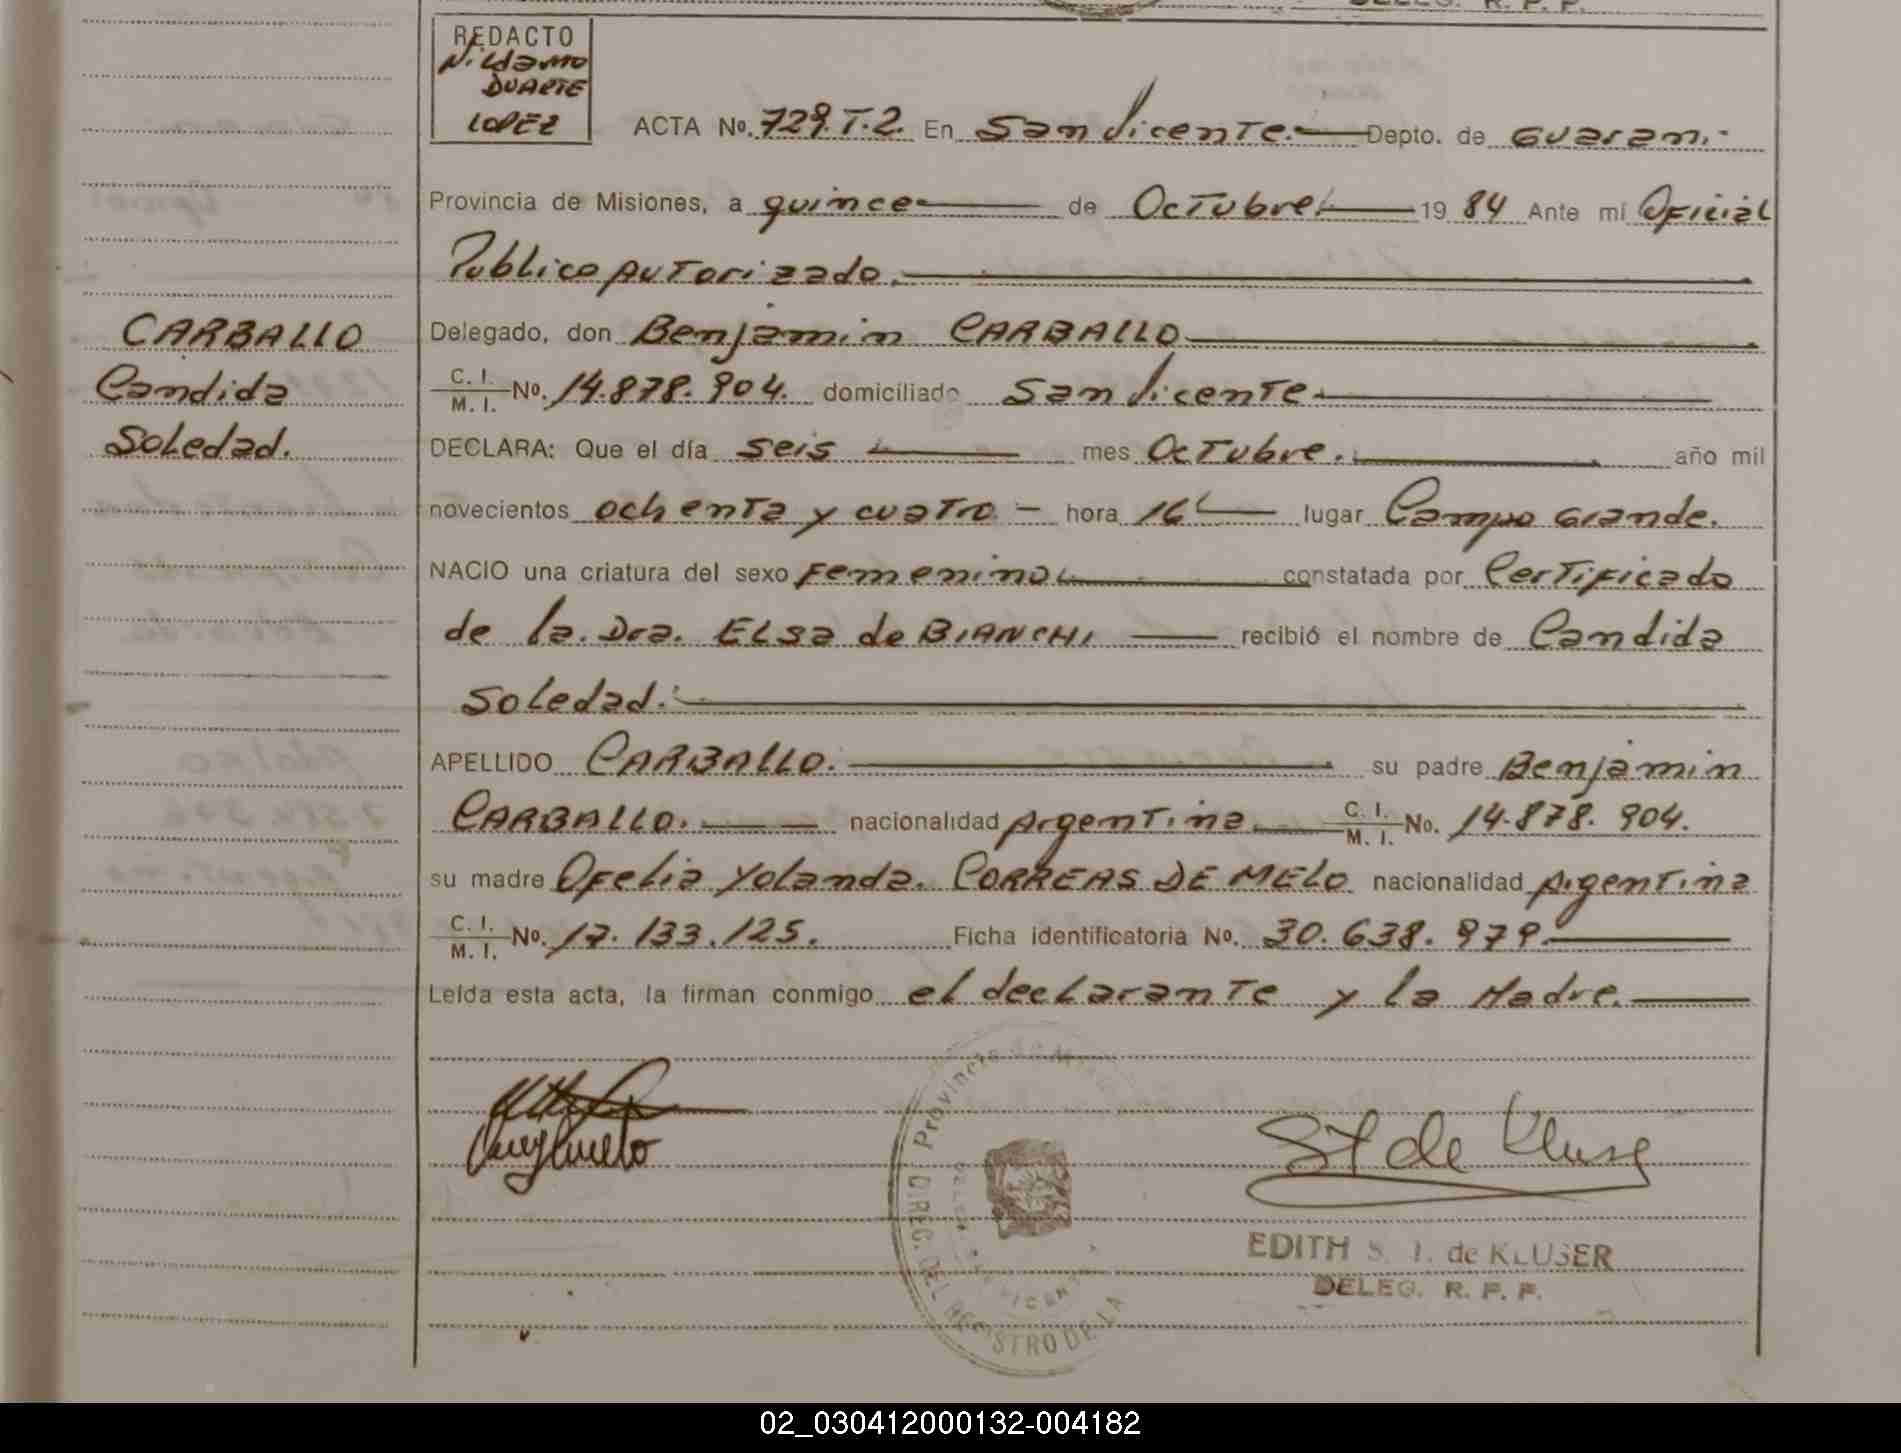 DELEG. R. P. P.
REDACTO
DUARTE
LOPEZ
ACTA No. 729. T. 2. En San Vicente. Depto. de Guaraní
Provincia de Misiones, a quince de Octubre 19 84 Ante mí Oficial
Publico Autorizado.
CARBALLO
Candida
Soledad.
Delegado, don Benjamin CARBALLO
C. I. M. I. No. 14.878.904. domiciliado San Vicente
DECLARA: Que el día seis mes Octubre. año mil
novecientos ochenta y cuatro - hora 16 lugar Campo Grande.
NACIO una criatura del sexo femenino constatada por Certificado
de la. Dra. ELSa de BIANCHI recibió el nombre de Candida
Soledad.
APELLIDO CARBALLO. su padre Benjamin
CARBALLO. nacionalidad Argentina C. I. M. I. No. 14.878.904.
su madre Ofelia Yolanda. CORREAS DE MELO nacionalidad Argentina
C. I. M. I. No. 17.133.125. Ficha identificatoria No. 30.638.979
Leída esta acta, la firman conmigo el declarante y la Madre.
Provincia de
DIREC. DEL REGISTRO DE LA
EDITH S. I. de KLUSER
DELEG. R. P. P.
02_030412000132-004182